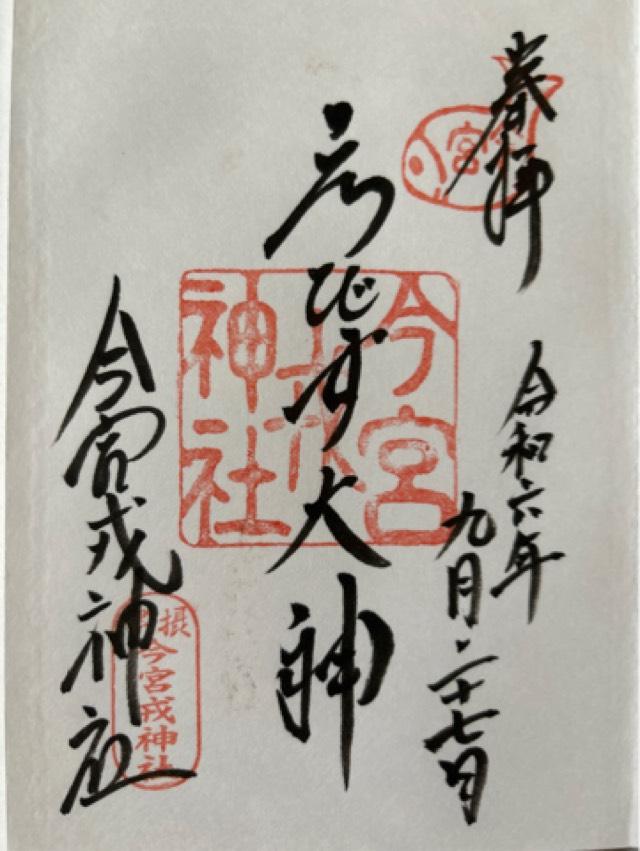 奉拝
宮
令和六年
九月二十七日
ゑびす大神
今宮
戎
神社
今宮戎神社
摂
今宮戎神社